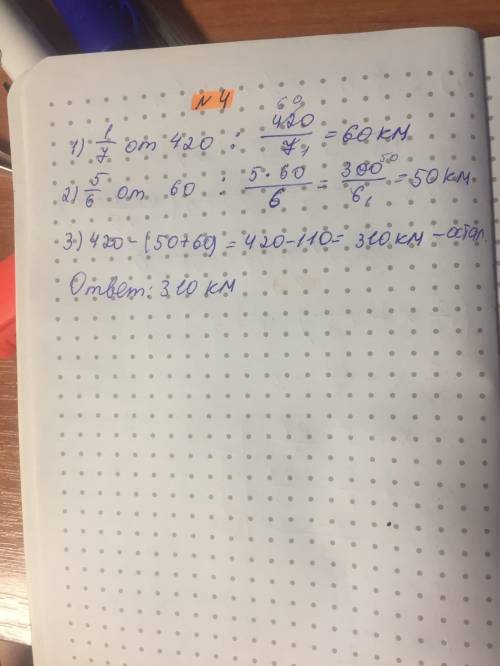 N 4
1) 1/7 от 420 : 420/7 = 60 км
60 1
2) 5/6 от 60 : 5·60/6 = 300/6 = 50 км
50 1
3) 420-(50+60) = 420-110 = 310 км - остал.
Ответ: 310 км